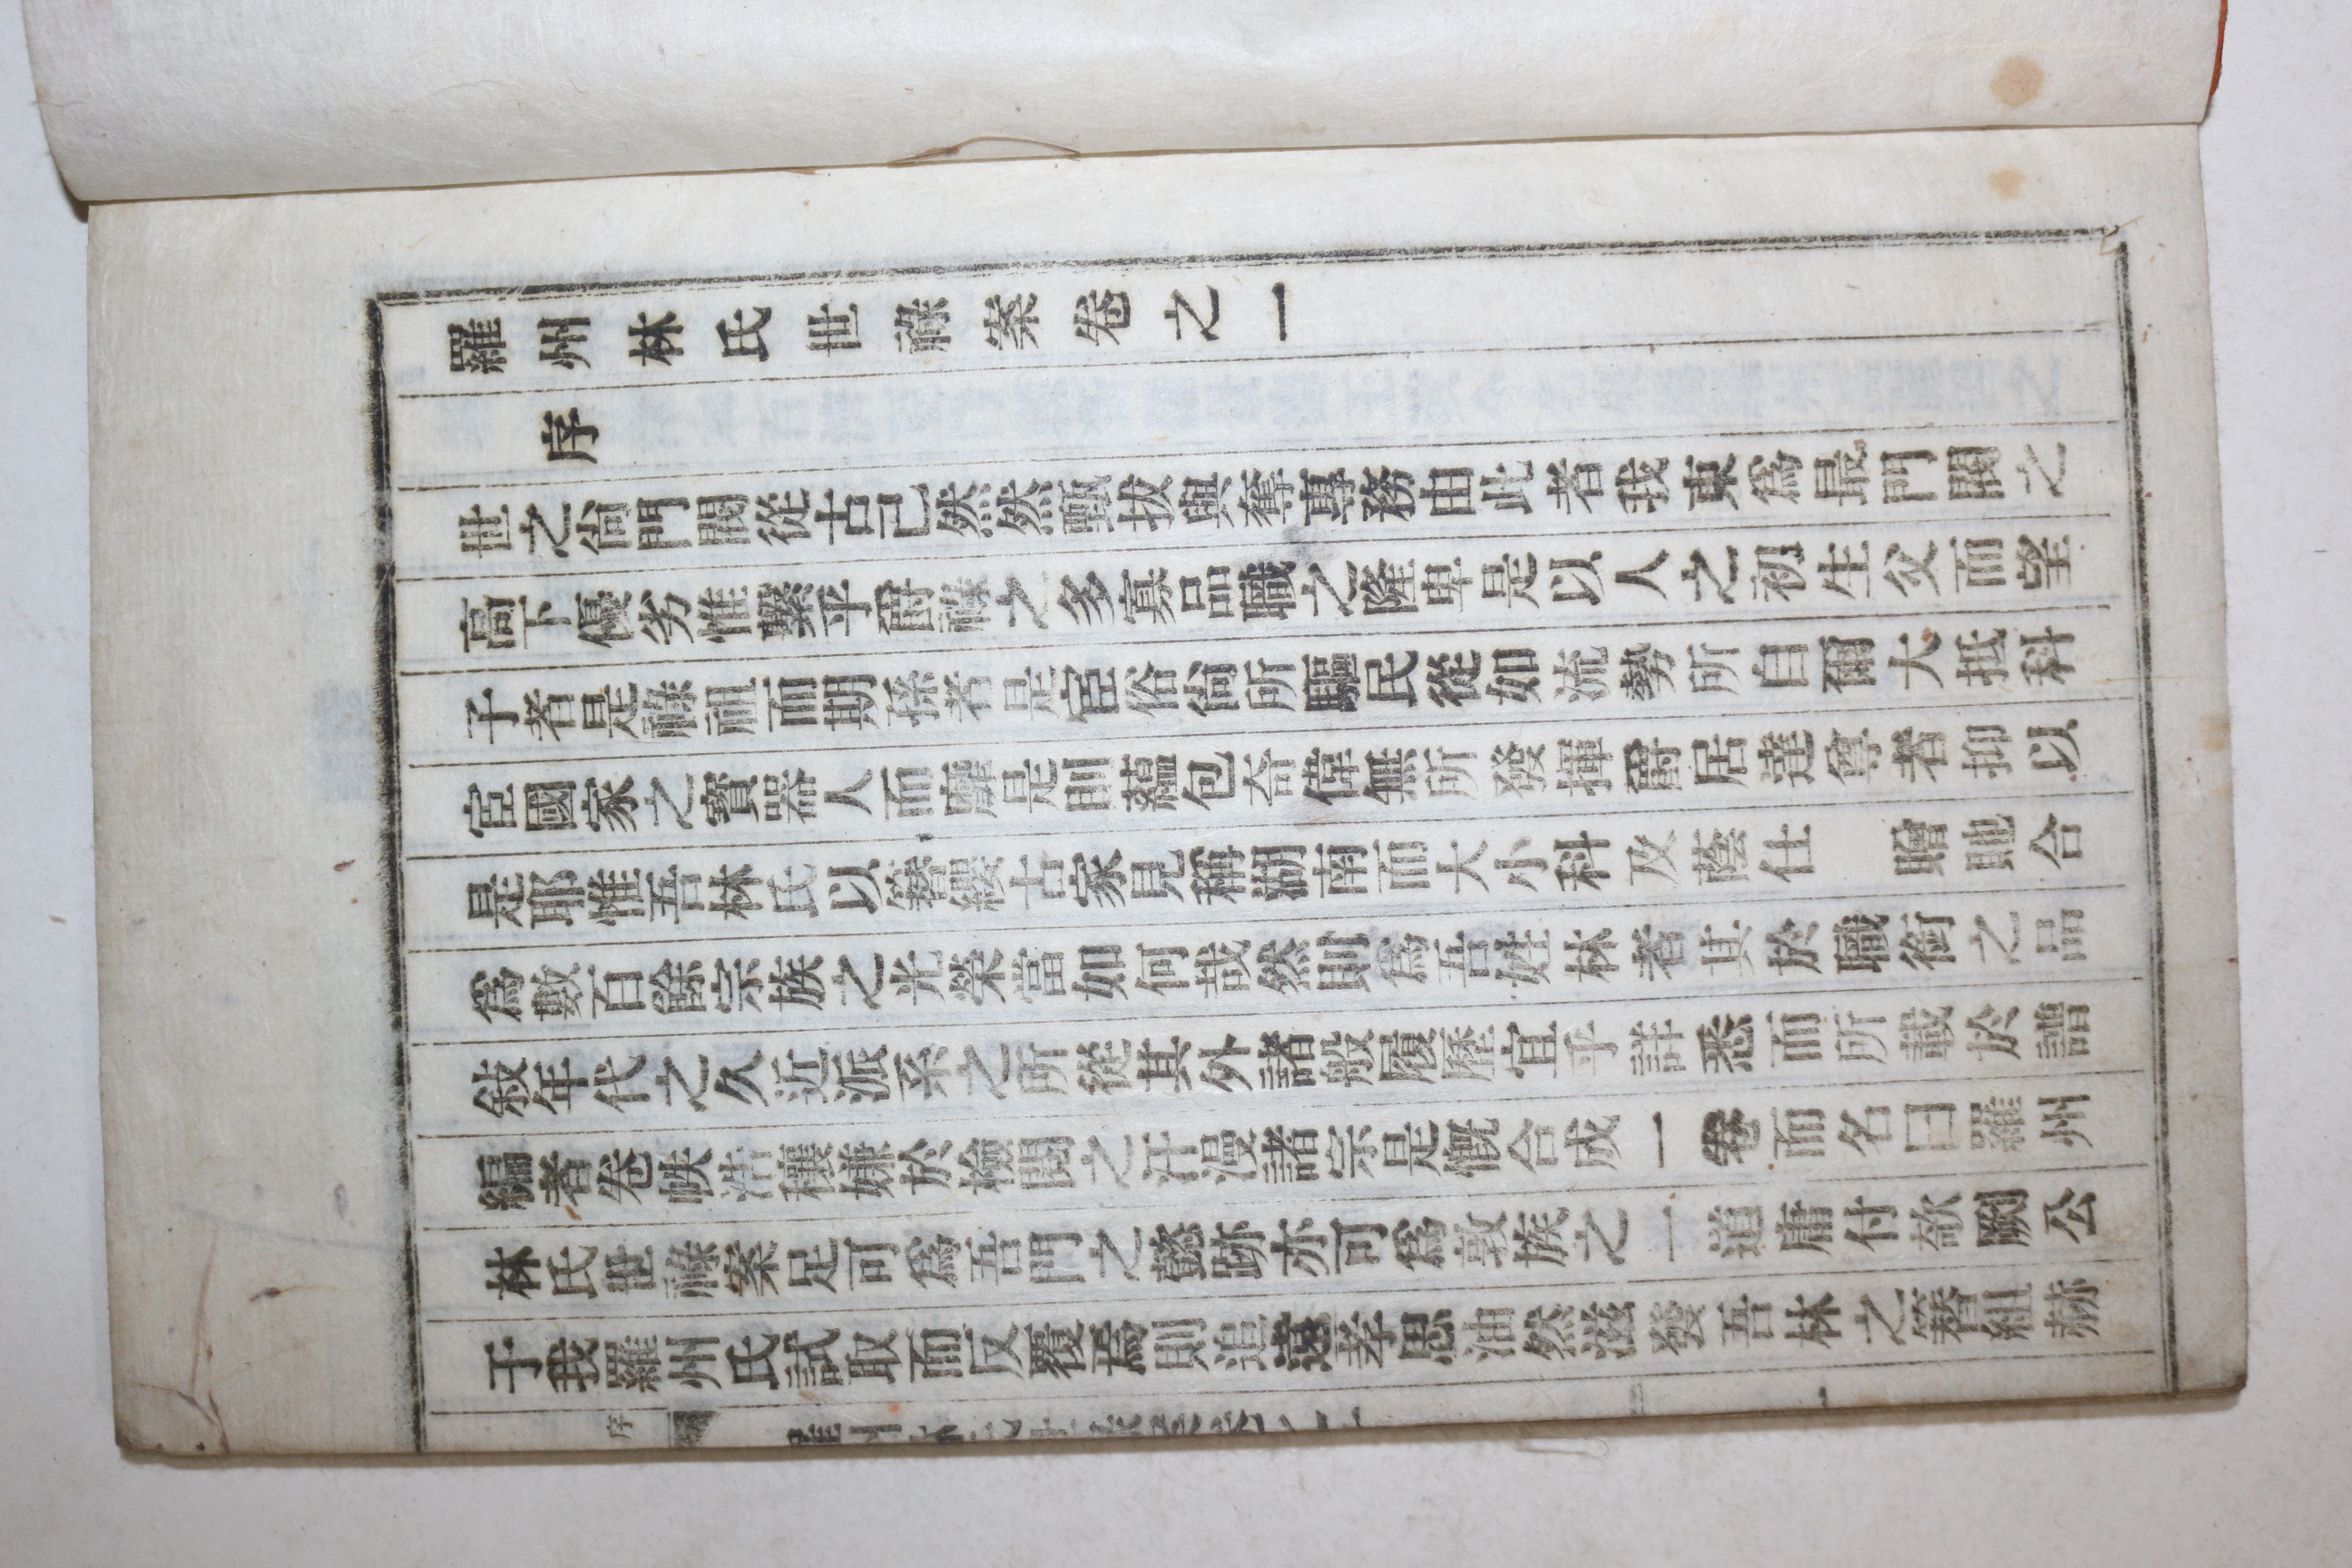 羅州林氏世祿案卷之一
序
世之尙門閥從古已然然甄拔與奪專務由此者我東爲最門閥之
高下優劣惟繫乎爵祿之多寡品職之隆卑是以人之初生灸而望
子者是祿而期孫者是宦俗尙所驅民從如流勢所自爾大抵科
宦國家之寶器人而是則蘊包奇偉無所發揮爵居達尊者抑以
是耶惟吾林氏以簪纓古家見稱湖南而大小科及蔭仕 贈貤合
爲數百餘宗族之光榮當如何哉然則爲吾姓林者其於職銜之品
敍年代之久近派系之所從其外諸般履歷宜乎詳悉而所載於譜
編者卷帙浩穰嫌於檢閱之汗漫諸宗是慨合成一卷而名曰羅州
林氏世祿案足可爲吾門之懿跡亦可爲敦族之一道庸付剞劂公
于我羅州氏試取而反覆焉則追遠孝思油然滋發吾林之簪組赫
序